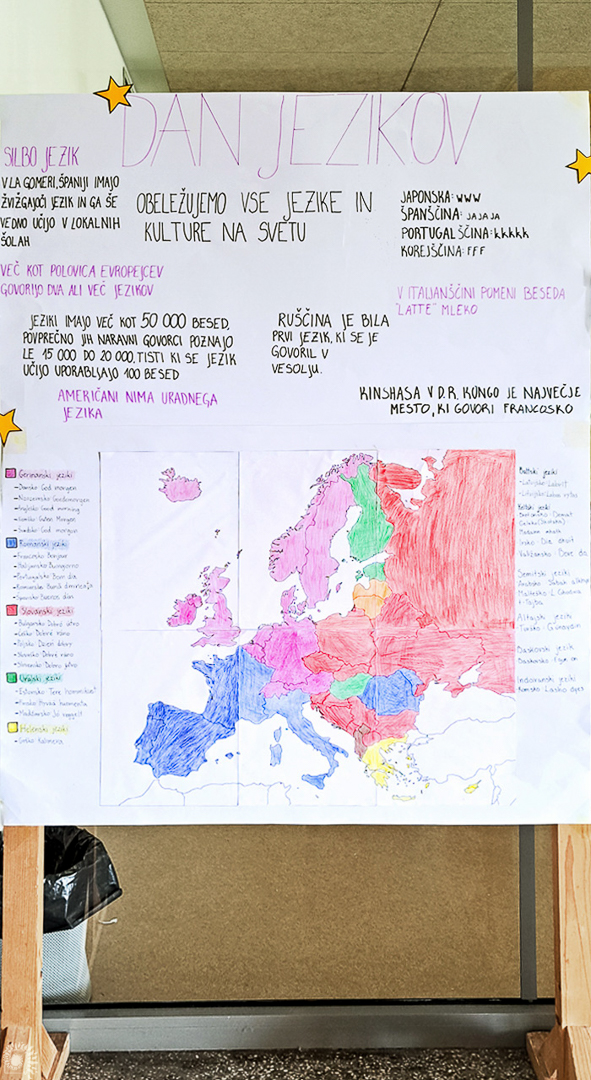 DAN JEZIKOV
SILBO JEZIK
V LA GOMERI, ŠPANIJI IMAJO
ŽVIŽGAJOČI JEZIK IN GA ŠE
VEDNO UČIJO V LOKALNIH
ŠOLAH
OBELEŽUJEMO VSE JEZIKE IN
KULTURE NA SVETU
JAPONSKA: WWW
ŠPANŠČINA: JAJAJA
PORTUGALŠČINA: KKKKK
KOREJŠČINA: FFF
VEČ KOT POLOVICA EVROPEJCEV
GOVORIJO DVA ALI VEČ JEZIKOV
V ITALIANŠČINI POMENI BESEDA
"LATTE" MLEKO
JEZIKI IMAJO VEČ KOT 50 000 BESED,
POVPREČNO JIH NARAVNI GOVORCI POZNAJO
LE 15 000 DO 20 000, TISTI KI SE JEZIK
UČIJO UPORABLJAJO 100 BESED
RUŠČINA JE BILA
PRVI JEZIK, KI SE JE
GOVORIL V
VESOLJU.
AMERIČANI NIMA URADNEGA
JEZIKA
KINSHASA V D.R. KONGO JE NAJVEČJE
MESTO, KI GOVORI FRANCOSKO
Germanski jeziki
- Dansko God morgen
- Norveško Godmorgen
- Angleško Good morning
- Nemško Guten Morgen
- Švedsko God morgon
Romanski jeziki
- Francosko Bonjour
- Italijansko Buongiorno
- Portugalsko Bom dia
- Romunsko Bună dimineața
- Špansko Buenos días
Slovanski jeziki
- Bolgarsko Dobro utro
- Češko Dobré ráno
- Poljsko Dzień dobry
- Slovaško Dobré ráno
- Slovensko Dobro jutro
Uralski jeziki
- Estonsko Tere hommikust
- Finsko Hyvää huomenta
- Madžarsko Jó reggelt
Helenski jeziki
- Grško Kalimera
Baltski jeziki
- Latvijsko Labrīt
Keltski jeziki
Irsko - Dia dhuit
Semitski jeziki
Altajski jeziki
Tursko - Günaydın
Baskovski jeziki
Baskovsko - Egun on
Indoiranski jeziki